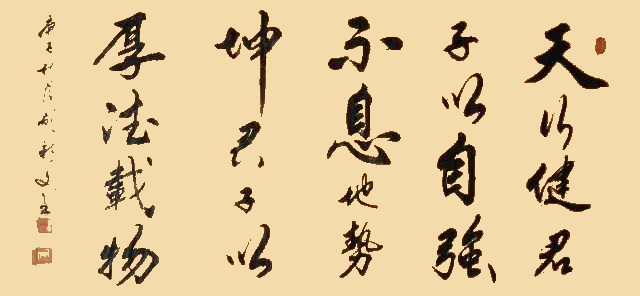 天行健君
子以自強
不息地勢
坤君子以
厚德載物
庚子